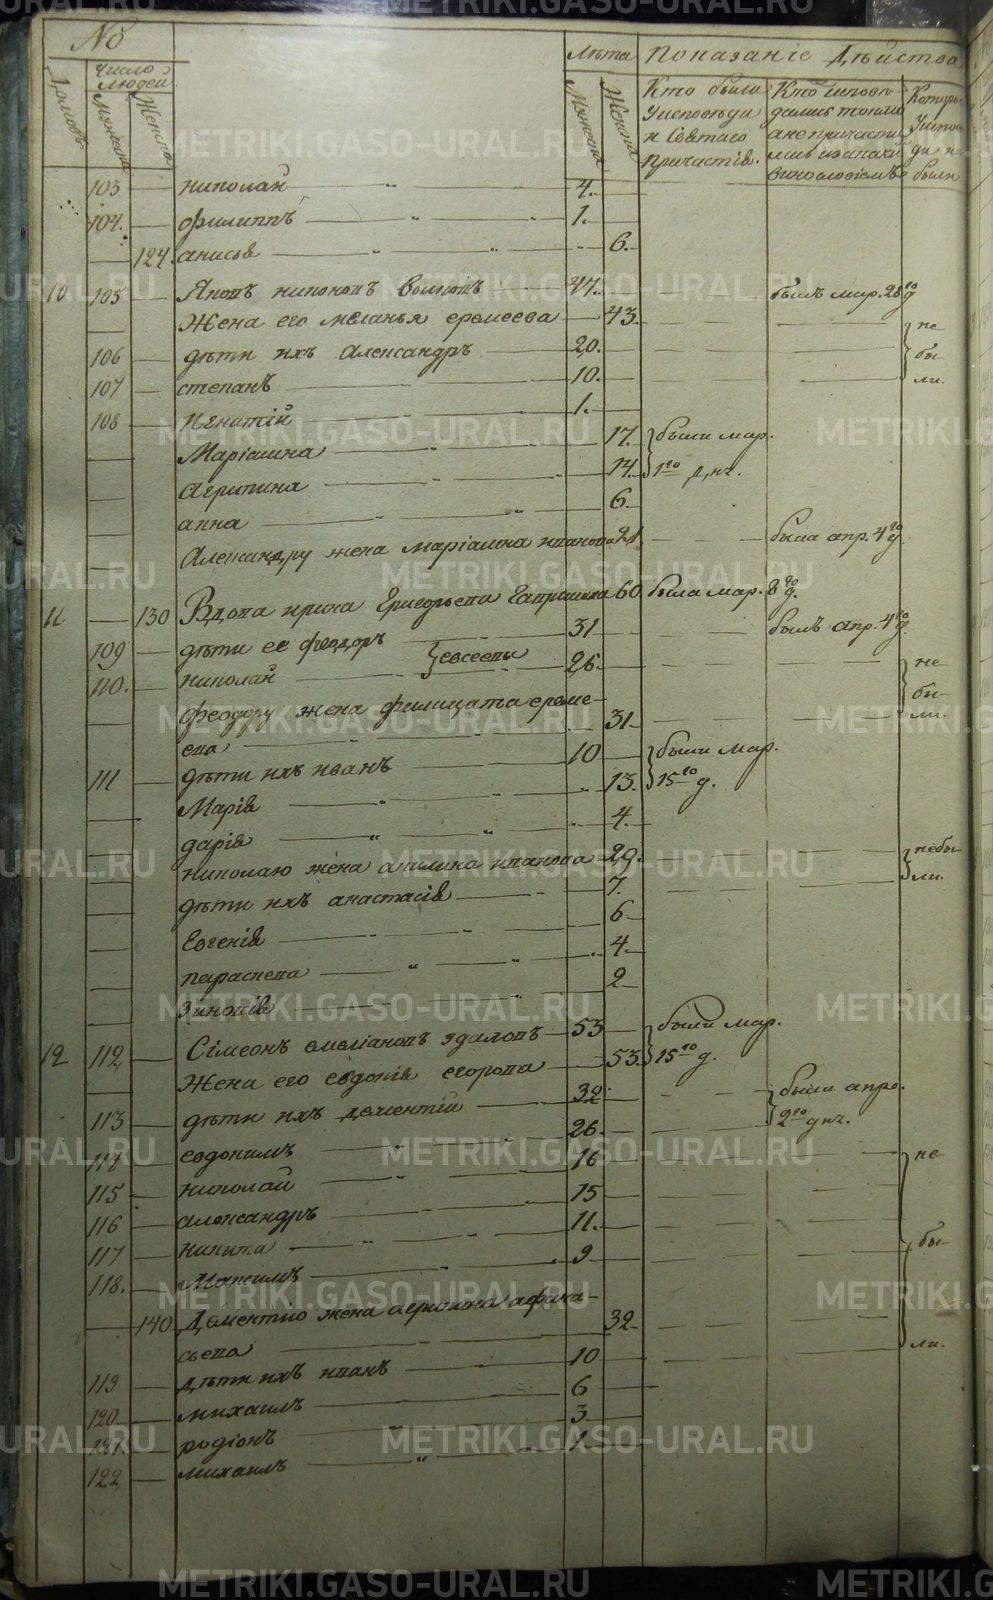 METRIKI.GASO-URAL.RU
№
Лѣта Показаніе Дѣйства
Домовъ. Число людей
Мужеска Женска
Мужеска Женска
Кто были Уисповѣди и Святаго Причастія.
Кто исповѣдались токмо а не причастились
Уисповѣди не были
103 николай 4.
104. филиппъ 1.
124. анисья 6.
10 105 47. былъ мар. 28го д
Жена его меланья еремеева 43. не
106 дѣти ихъ Александръ 20. бы
107 степанъ 10. ли.
108 Игнатій 1.
Маріамна 17. были мар.
Агрипина 14. 1го днч.
анна 6.
Александру жена маріамна иванова 21 была апр. 4го д.
11 130 Вдова ирина Григорьева 60. была мар. 8го д.
109 дѣти ее феодоръ 31 былъ апр. 4го д.
110. николай евсеевы 26. не
феодору жена филицата ереме- бы-
ева 31 ли.
111 дѣти ихъ иванъ 10 были мар.
Марія 13. 15го д.
дарія 4.
николаю жена акилина иванова 29. небы
дѣти ихъ анастасія 7. ли.
Евгенія 6
параскева 4
Зиновія 2
12 112 Сімеонъ емеліановъ удаловъ 53 были мар.
Жена его евдокія егорова 53. 15го д.
113 дѣти ихъ дементій 32 были апре.
114 евдокимъ 26. 2го днч.
115 николай 16 не
116 александръ 15
117 никита 11. бы-
118. Максимъ 9
140 Дементію жена агрипина афана-
сьева 32 ли.
119 дѣти ихъ иванъ 10
120 михаилъ 6
121. родіонъ 3
122 михаилъ 1.